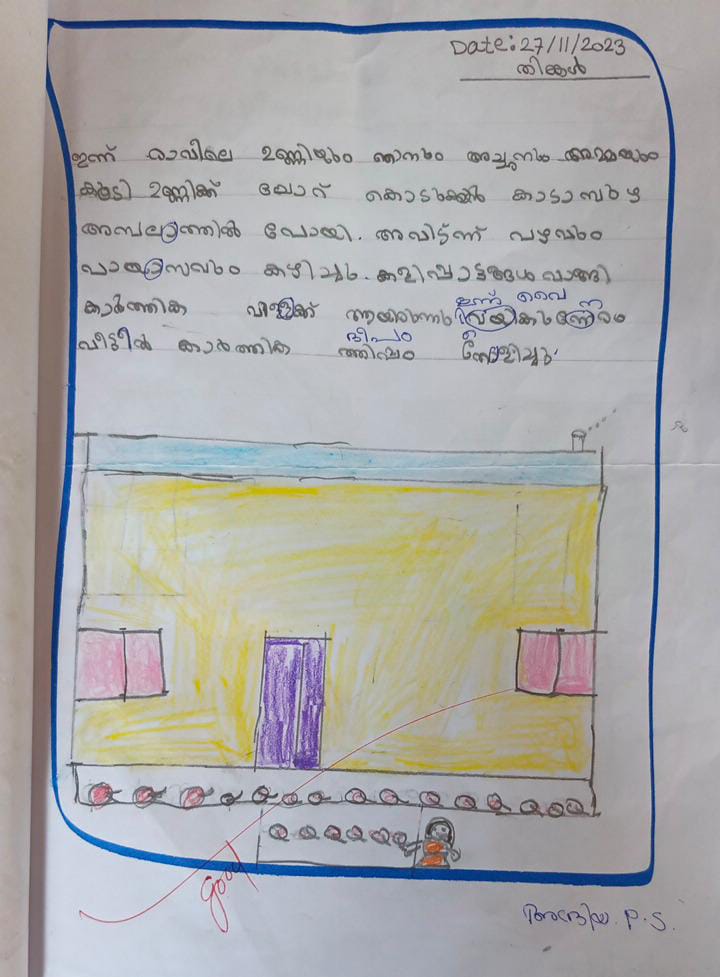 Date: 27/11/2023
തിങ്കൾ
ഇന്ന് രാവിലെ ഉണ്ണിയും ഞാനും അച്ഛനും അമ്മയും
കൂടി ഉണ്ണിക്ക് ചോറ് കൊടുക്കാൻ കാടാമ്പുഴ
അമ്പലത്തിൽ പോയി. അവിട്ന്ന് പഴവും
പായസവും കഴിച്ചു. കളിപ്പാട്ടങ്ങൾ വാങ്ങി
ഇന്ന് വൈ ന്നേ
കാർത്തിക വിളക്ക് ആയിരുന്നു വയികുന്നേരം
ദീപം
വീട്ടിൽ കാർത്തിക ത്തിപം തെളിച്ചു.
good
P.S.